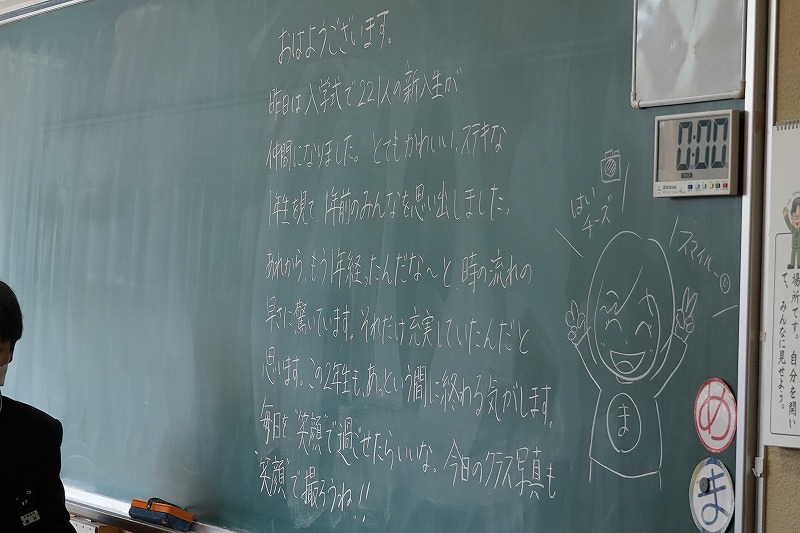 おはようございます。
昨日は入学式で221人の新入生が
仲間になりました。とてもかわいい、ステキな
1年生を見て1年前のみんなを思い出しました。
あれから、もう1年経ったんだな〜と時の流れの
早さに驚いています。それだけ充実していたんだと
思います。この2年生も、あっという間に終わる気がします。
毎日を"笑顔"で過ごせたらいいな。今日のクラス写真も
"笑顔"で撮ろうね!!
はい
チーズ
スマイル
ま
0:00
め
ま
場所です。自分を開い
て、みんなに見せよう。